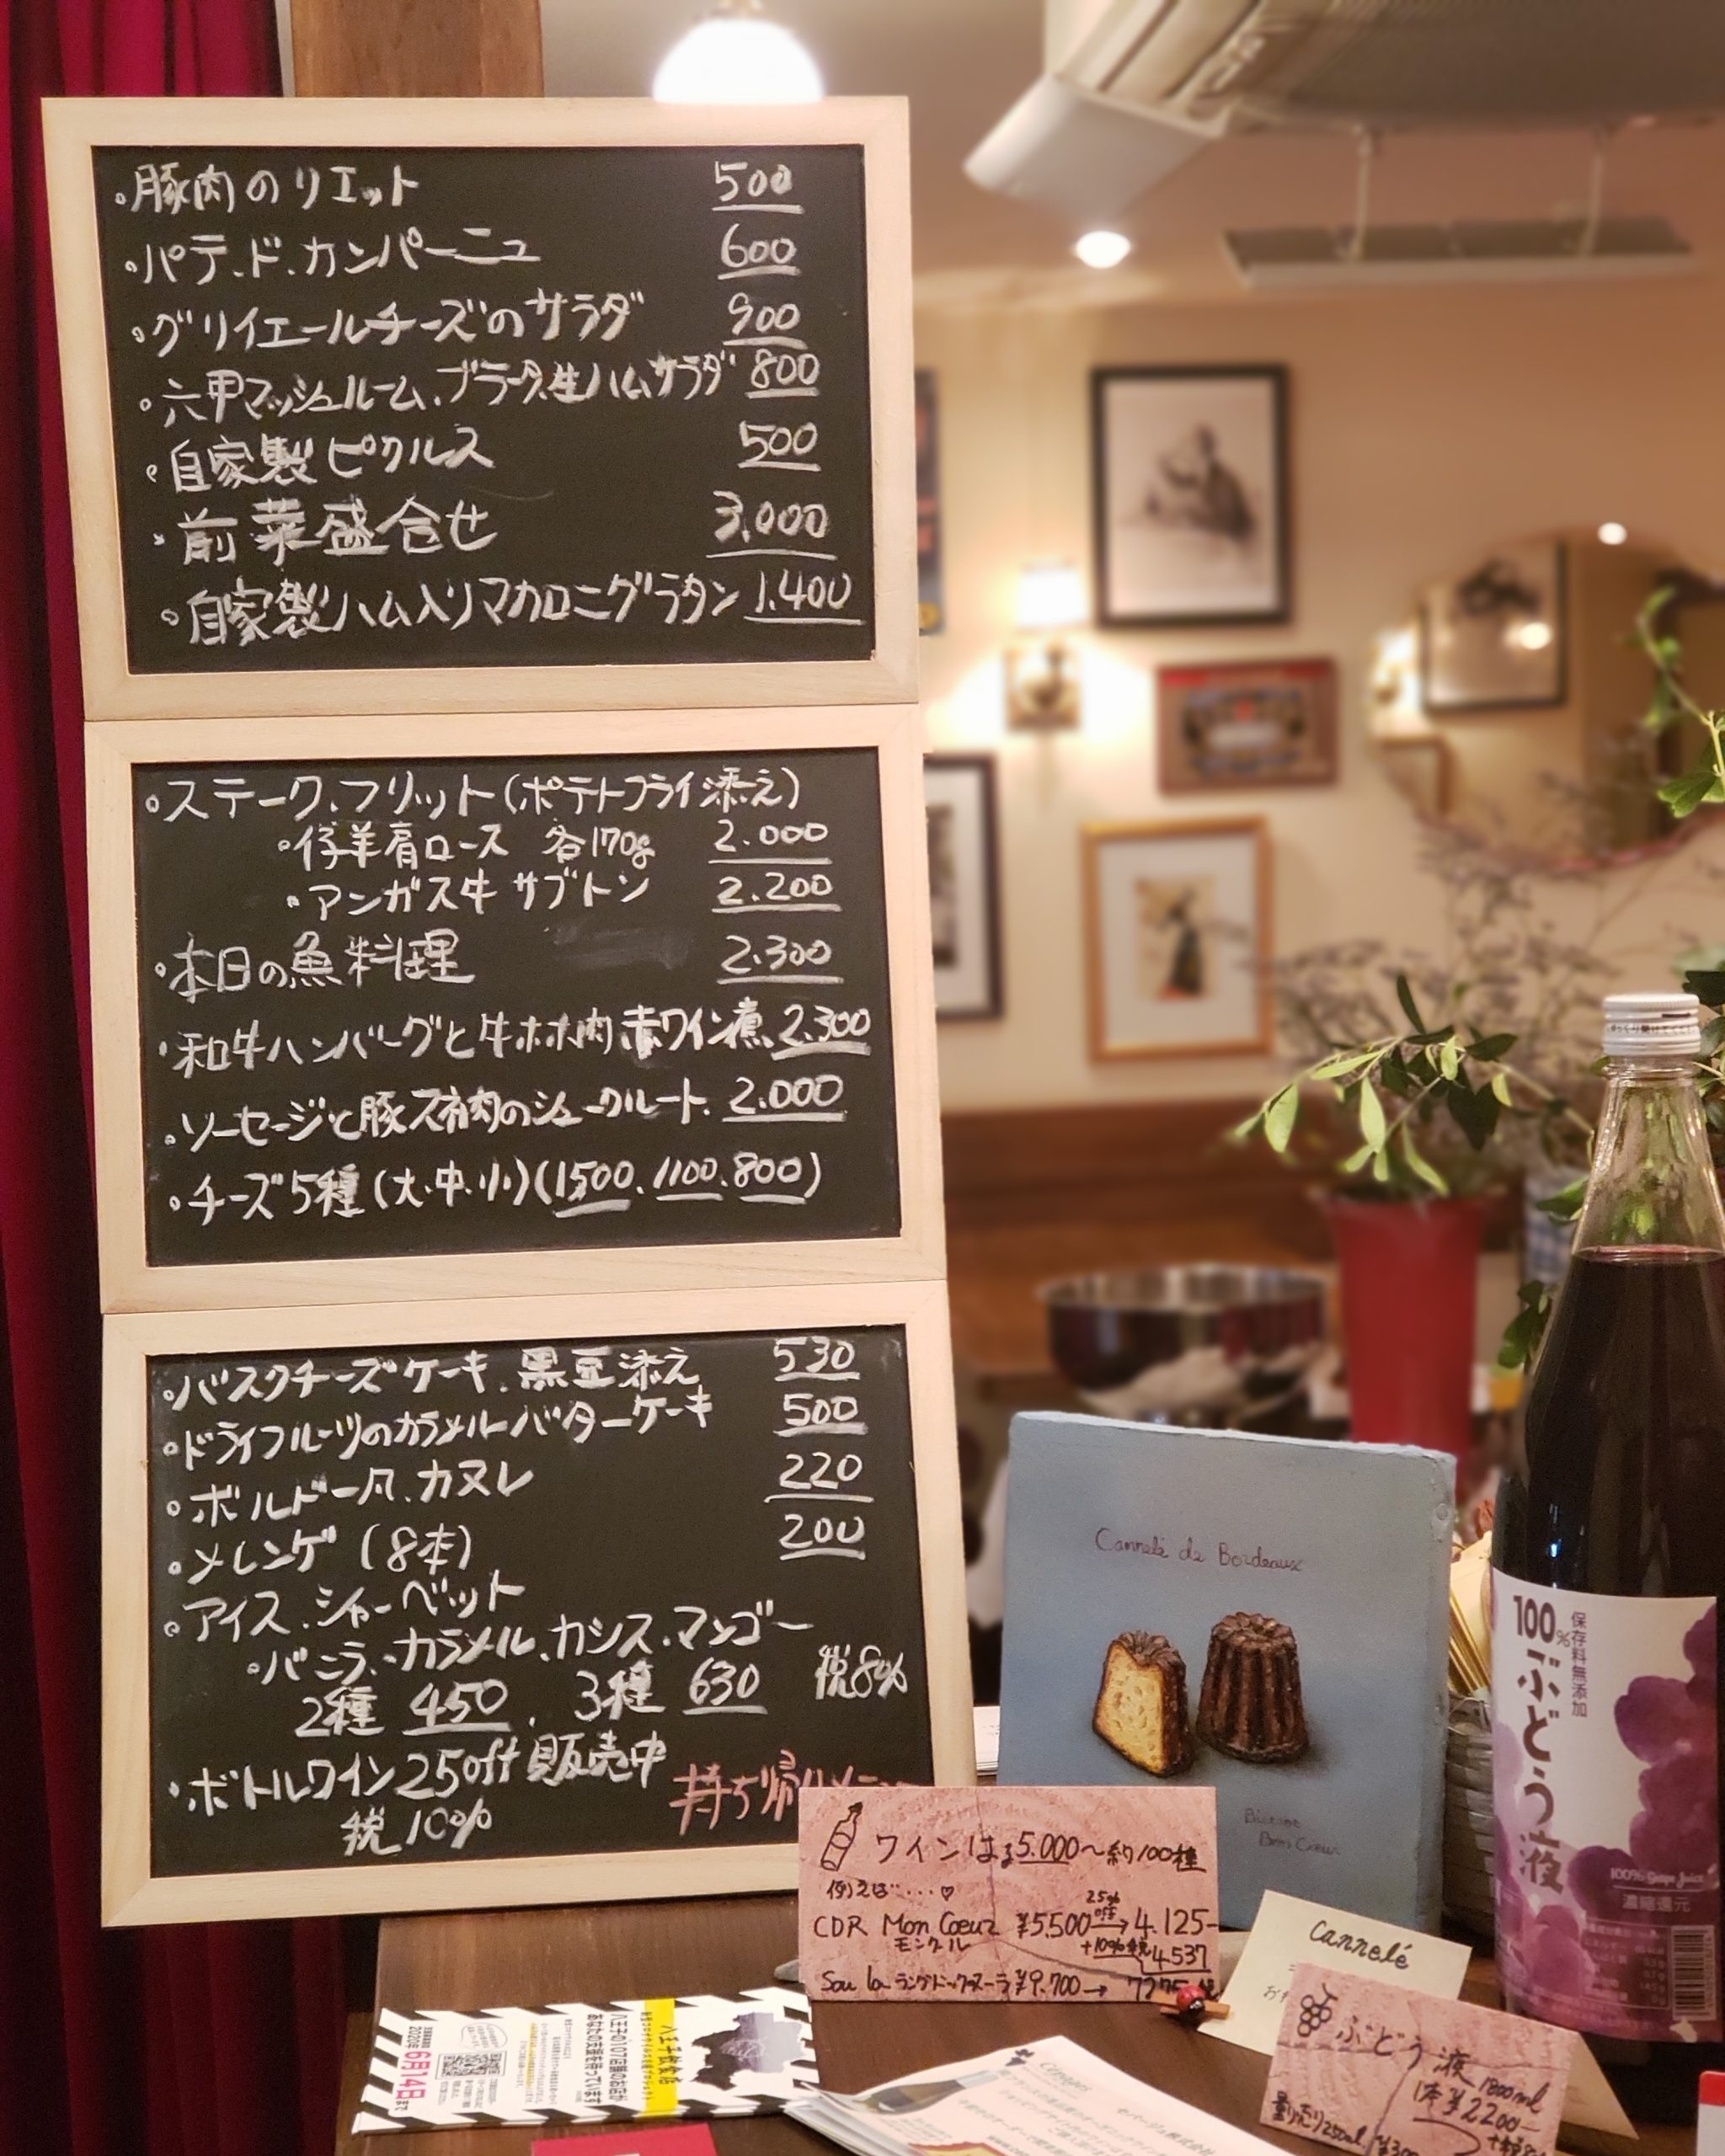 ・豚肉のリエット 500
・パテ.ド.カンパーニュ 600
・グリイエールチーズのサラダ 900
・六甲マッシュルーム、ブラータ、生ハムサラダ 800
・自家製ピクルス 500
・前菜盛合せ 3.000
・自家製ハム入りマカロニグラタン 1.400
・ステーク.フリット(ポテトフライ添え)
・仔羊肩ロース 各170g 2.000
・アンガス牛 サブトン 2.200
・本日の魚料理 2.300
・和牛ハンバーグと牛ホホ肉赤ワイン煮 2.300
・ソーセージと豚スネ肉のシュークルート. 2.000
・チーズ5種(大.中.小)(1500.1100.800)
・バスクチーズケーキ.黒豆添え 530
・ドライフルーツのカラメルバターケーキ 500
・ボルドー風.カヌレ 220
・メレンゲ(8本) 200
・アイス.シャーベット
・バニラ.カラメル.カシス.マンゴー
2種 450. 3種 630 税8%
・ボトルワイン25off販売中
税10%
持ち帰りメニュー
Cannelé de Bordeaux
Bistrot
Bon Coeur
ワインは¥5.000〜約100種
例えば....♡
25%
off
CDR Mon Coeur ¥5500→4.125-
モンクール
+10%税 4537
Sou La ラングドック ¥9.700→
cannelé
ぶどう液
1800ml
1本¥2200-
量り売り250ml ¥300
100%ぶどう液
保存料無添加
100% Grape Juice
濃縮還元
八王子飲食店
八王子の107店舗のお店が
あなたの支援を待っています
2020年6月14日まで